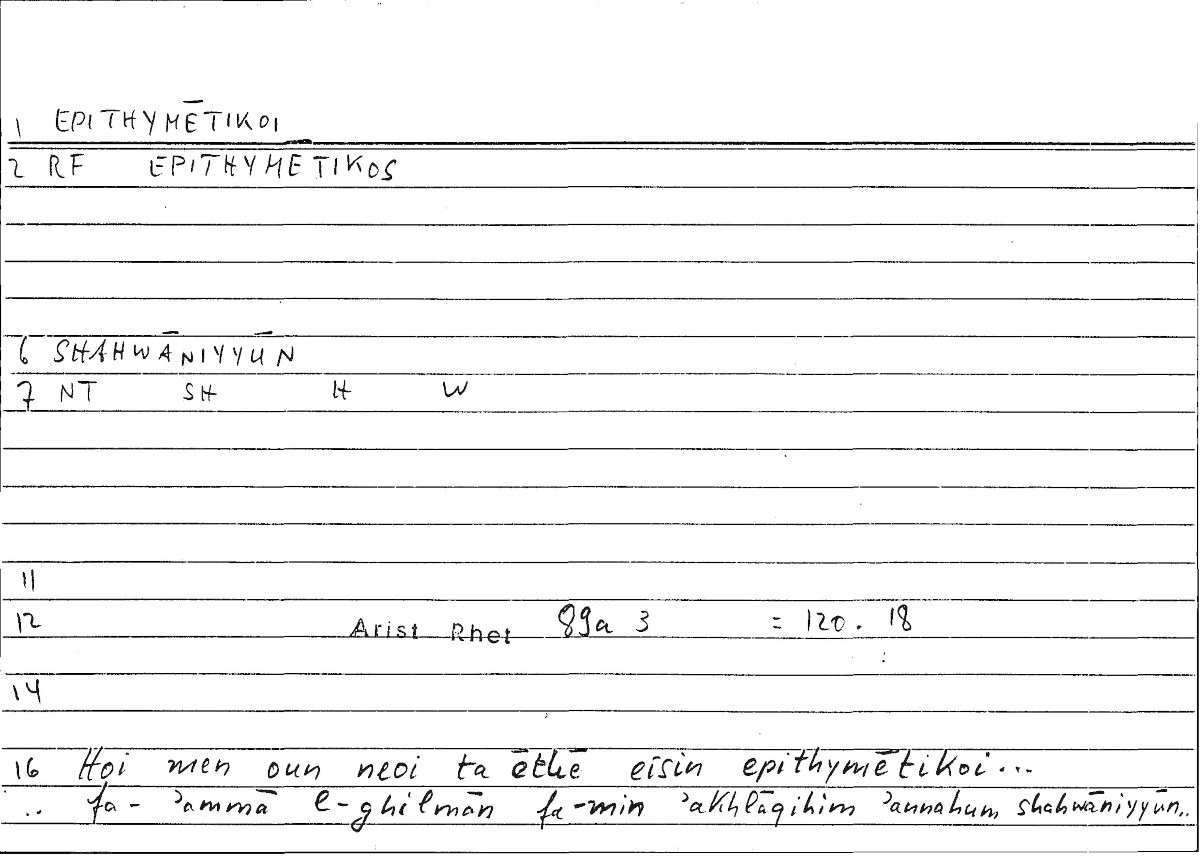 1 EPITHYMĒTIKOI
2 RF EPITHYMETIKOS
6 SHAHWĀNIYYŪN
7 NT SH H W
11
12 Arist Rhet 89a 3 = 120. 18
14
16 Hoi men oun neoi ta ēthē eisin epithymētikoi...
.. fa-ʾammā l-ghilmān fa-min ʾakhlāqihim ʾannahum shahwāniyyūn..